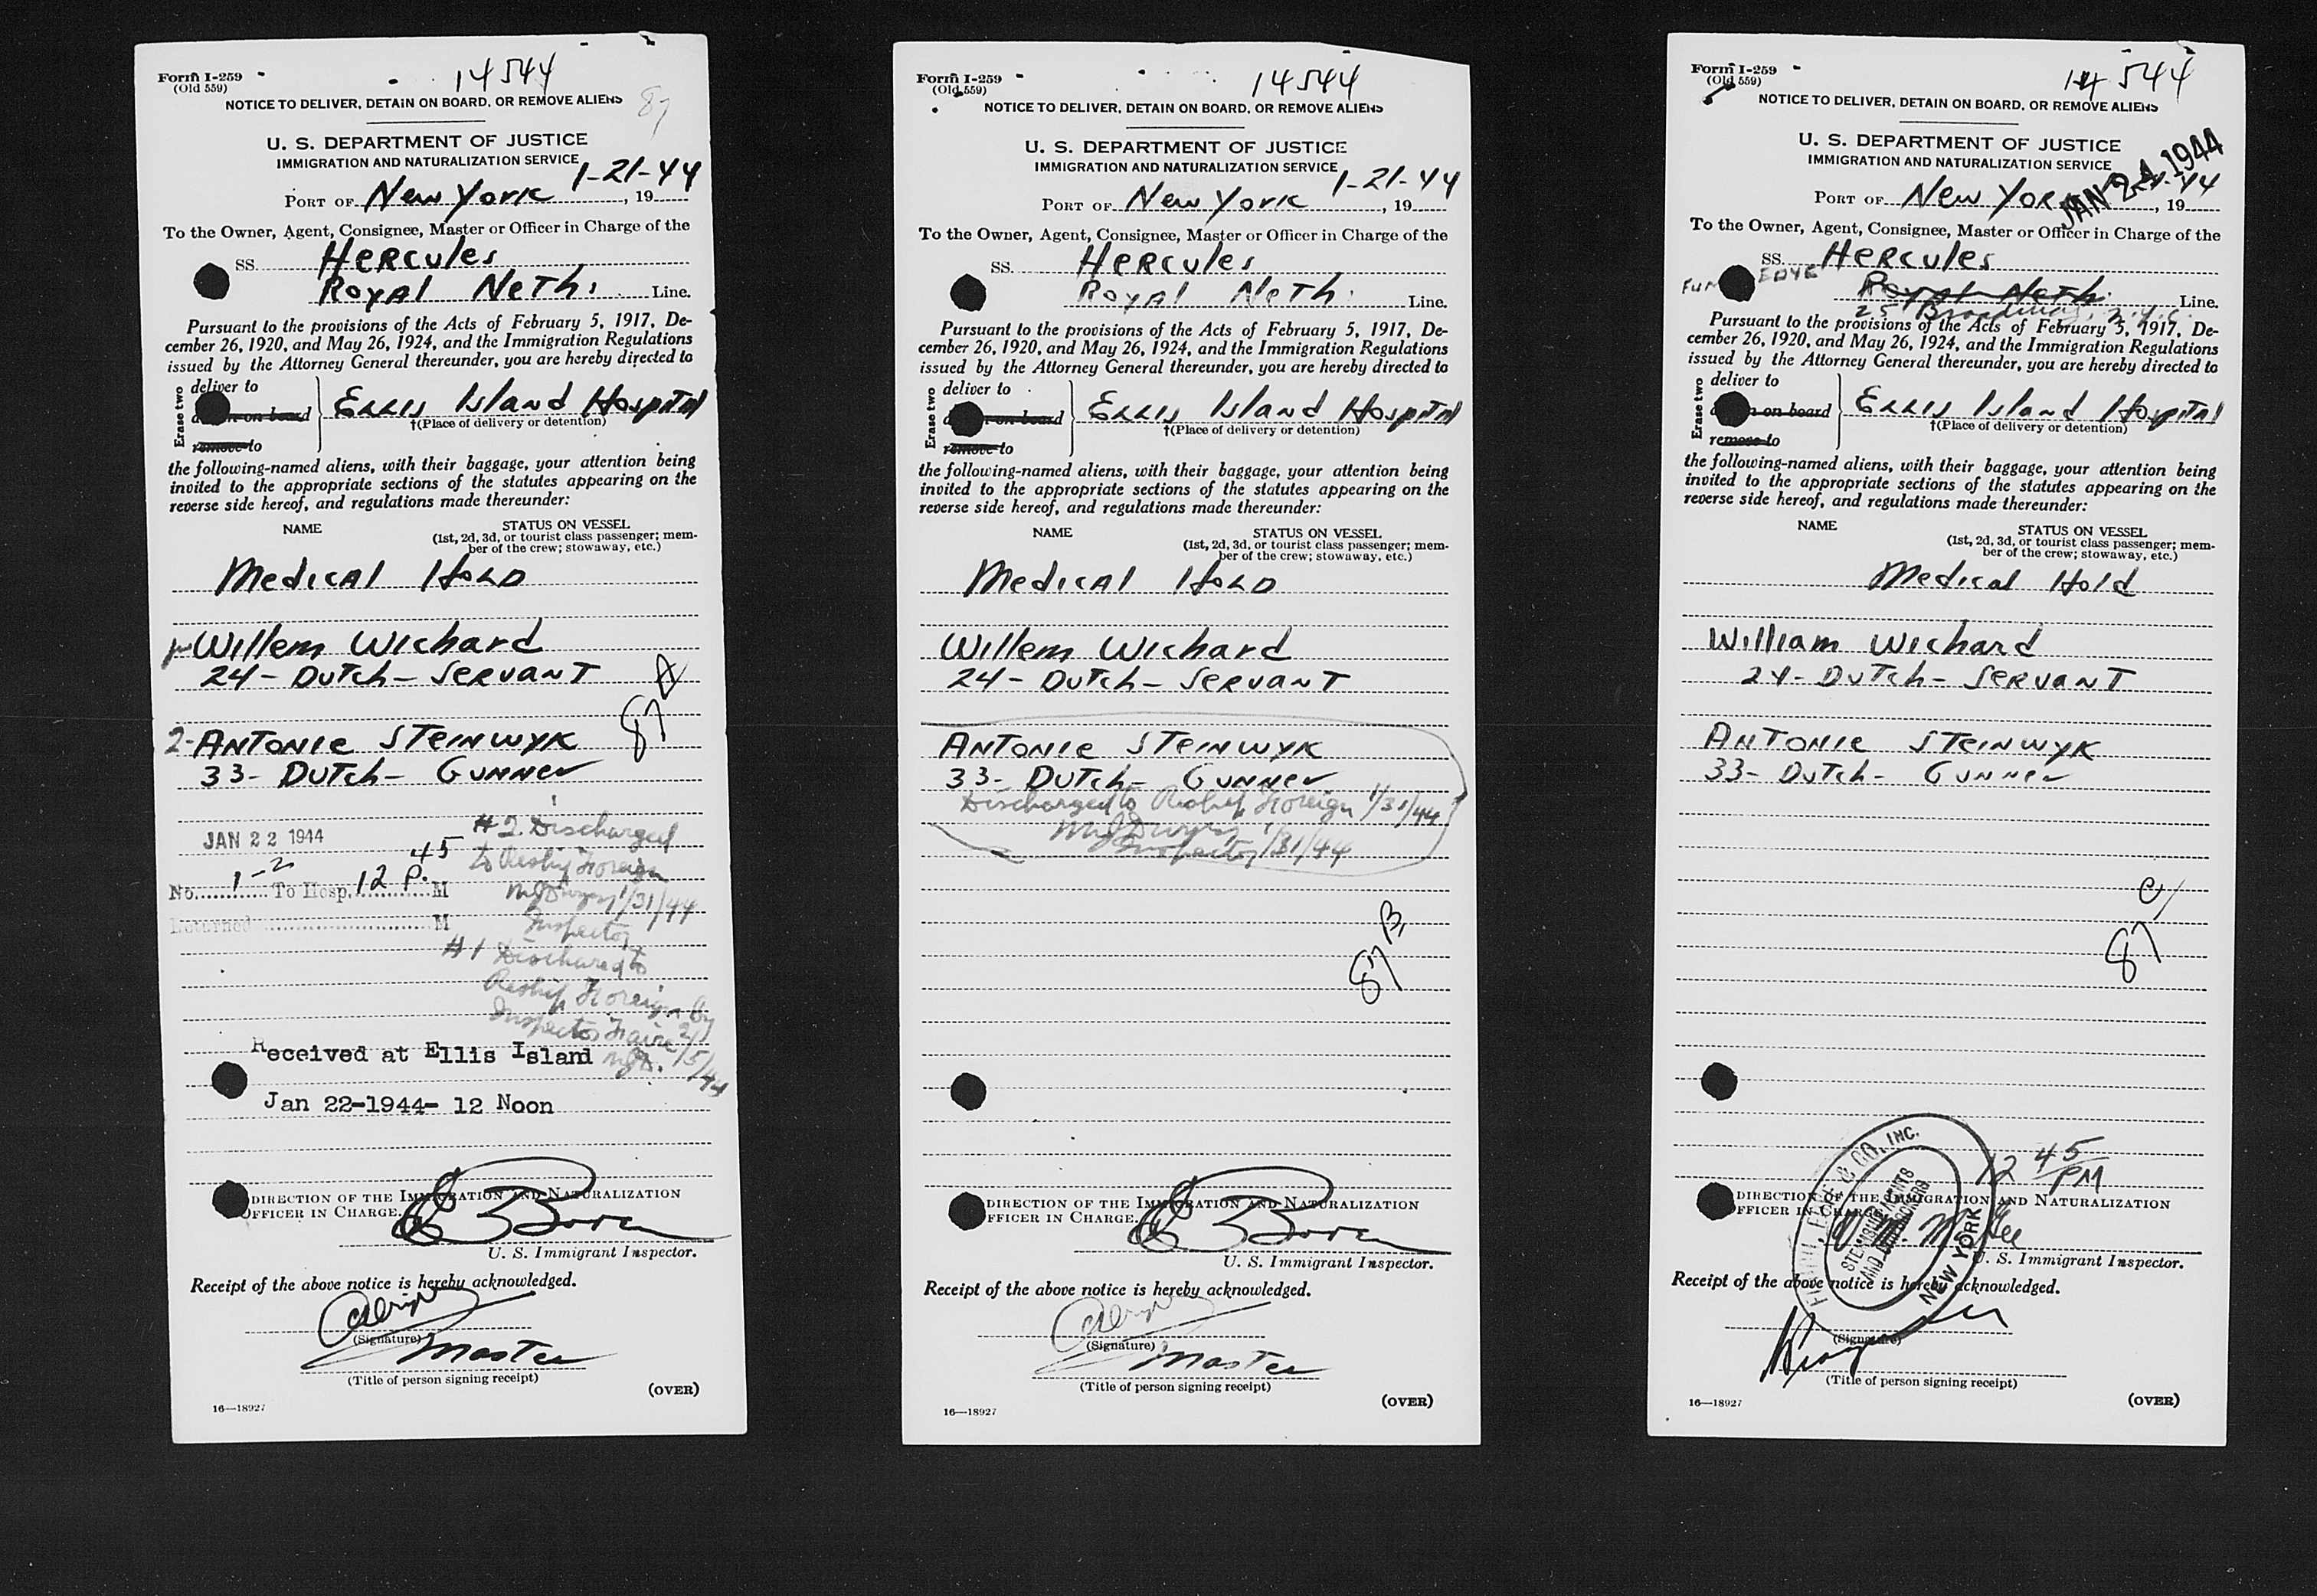 Form I-259
(Old 559)
14544
87
NOTICE TO DELIVER, DETAIN ON BOARD, OR REMOVE ALIENS
U. S. DEPARTMENT OF JUSTICE
IMMIGRATION AND NATURALIZATION SERVICE
1-21-44
PORT OF New York, 19
To the Owner, Agent, Consignee, Master or Officer in Charge of the
SS. Hercules
Royal Neth. Line.
Pursuant to the provisions of the Acts of February 5, 1917, De-
cember 26, 1920, and May 26, 1924, and the Immigration Regulations
issued by the Attorney General thereunder, you are hereby directed to
Erase two
deliver to
on board
remove to
Ellis Island Hospital
†(Place of delivery or detention)
the following-named aliens, with their baggage, your attention being
invited to the appropriate sections of the statutes appearing on the
reverse side hereof, and regulations made thereunder:
NAME
STATUS ON VESSEL
(1st, 2d, 3d, or tourist class passenger; mem-
ber of the crew; stowaway, etc.)
Medical Hold
Willem Wichard
24 - Dutch - Servant
87 A
2- Antonie Steinwyk
33- Dutch - Gunner
JAN 22 1944
No. 1-2 To Hosp. 12 45 P. M
Returned M
#2 Discharged
to Reship Foreign
1/31/44
Inspector
#1 Discharged to
Reship Foreign by
Inspector
2/15/44
Received at Ellis Island
Jan 22-1944- 12 Noon
DIRECTION OF THE IMMIGRATION AND NATURALIZATION
OFFICER IN CHARGE.
U. S. Immigrant Inspector.
Receipt of the above notice is hereby acknowledged.
(Signature)
Master
(Title of person signing receipt)
(OVER)
16—18927
Form I-259
(Old 559)
14544
NOTICE TO DELIVER, DETAIN ON BOARD, OR REMOVE ALIENS
U. S. DEPARTMENT OF JUSTICE
IMMIGRATION AND NATURALIZATION SERVICE
1-21-44
PORT OF New York, 19
To the Owner, Agent, Consignee, Master or Officer in Charge of the
SS. Hercules
Royal Neth. Line.
Pursuant to the provisions of the Acts of February 5, 1917, De-
cember 26, 1920, and May 26, 1924, and the Immigration Regulations
issued by the Attorney General thereunder, you are hereby directed to
Erase two
deliver to
on board
remove to
Ellis Island Hospital
†(Place of delivery or detention)
the following-named aliens, with their baggage, your attention being
invited to the appropriate sections of the statutes appearing on the
reverse side hereof, and regulations made thereunder:
NAME
STATUS ON VESSEL
(1st, 2d, 3d, or tourist class passenger; mem-
ber of the crew; stowaway, etc.)
Medical Hold
Willem Wichard
24 - Dutch - Servant
Antonie Steinwyk
33- Dutch - Gunner
Discharged to Reship Foreign 1/31/44
1/31/44
Inspector 1/31/44
87 B
DIRECTION OF THE IMMIGRATION AND NATURALIZATION
OFFICER IN CHARGE.
U. S. Immigrant Inspector.
Receipt of the above notice is hereby acknowledged.
(Signature)
Master
(Title of person signing receipt)
(OVER)
16—18927
Form I-259
(Old 559)
14544
NOTICE TO DELIVER, DETAIN ON BOARD, OR REMOVE ALIENS
U. S. DEPARTMENT OF JUSTICE
IMMIGRATION AND NATURALIZATION SERVICE
JAN 24 1944
PORT OF New York, 19
To the Owner, Agent, Consignee, Master or Officer in Charge of the
SS. Hercules
Royal Neth. Line.
25 Broadway, N.Y.C.
Pursuant to the provisions of the Acts of February 5, 1917, De-
cember 26, 1920, and May 26, 1924, and the Immigration Regulations
issued by the Attorney General thereunder, you are hereby directed to
Erase two
deliver to
on board
remove to
Ellis Island Hospital
†(Place of delivery or detention)
the following-named aliens, with their baggage, your attention being
invited to the appropriate sections of the statutes appearing on the
reverse side hereof, and regulations made thereunder:
NAME
STATUS ON VESSEL
(1st, 2d, 3d, or tourist class passenger; mem-
ber of the crew; stowaway, etc.)
Medical Hold
William Wichard
24 - Dutch - Servant
Antonie Steinwyk
33- Dutch - Gunner
87
12 45 PM
& CO., INC.
STEAMSHIP AGENTS
AND
NEW YORK
DIRECTION OF THE IMMIGRATION AND NATURALIZATION
OFFICER IN CHARGE.
U. S. Immigrant Inspector.
Receipt of the above notice is hereby acknowledged.
(Signature)
(Title of person signing receipt)
(OVER)
16—18927